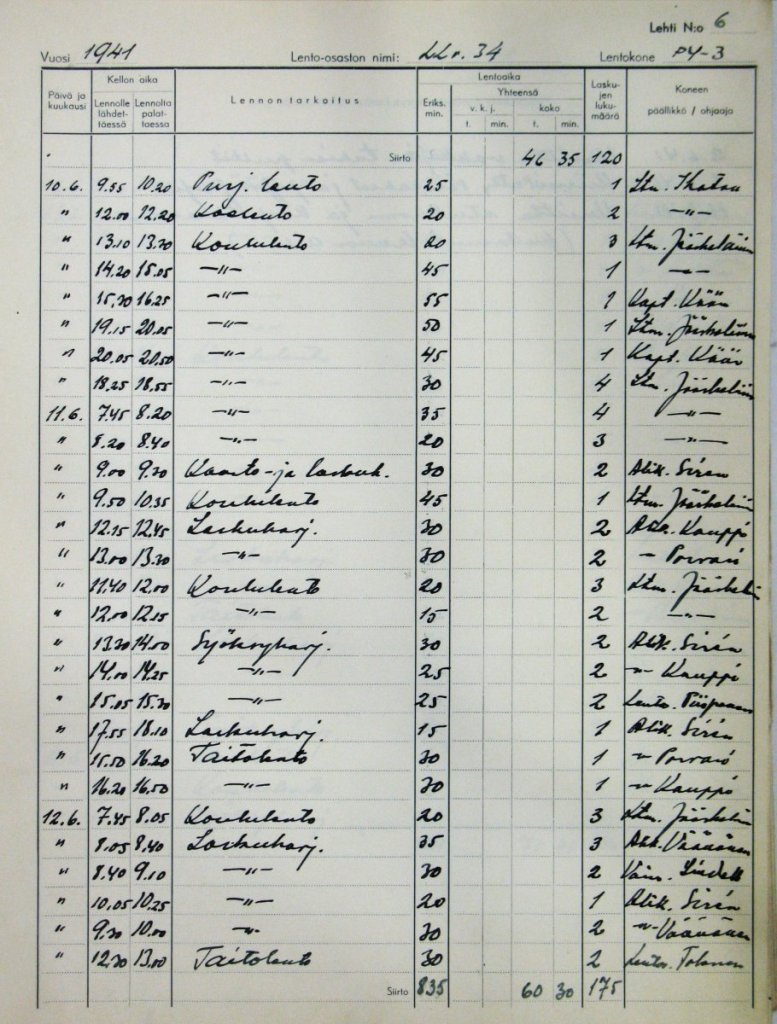 Lehti N:o 6
Vuosi 1941 Lento-osaston nimi: LLv. 34 Lentokone PY-3
Päivä ja kuukausi Kellon aika Lennolle lähdettäessä Lennolta palattaessa Lennon tarkoitus Lentoaika Eriks. min. Yhteensä v. k. j. t. min. koko t. min. Laskujen lukumäärä Koneen päällikkö / ohjaaja
Siirto 46 35 120
10.6. 9.55 10.20 Purj. lento 25 1 Ltn.
" 12.00 12.20 Koelento 20 2 —"—
" 13.10 13.30 Koululento 20 3 Ltm. Jääskeläinen
" 14.20 15.05 —"— 45 1 —"—
" 15.30 16.25 —"— 55 1 Kapt.
" 19.15 20.05 —"— 50 1 Ltm. Jääskeläinen
" 20.05 20.50 —"— 45 1 Kapt.
" 18.25 18.55 —"— 30 4 Ltm. Jääskeläinen
11.6. 7.45 8.20 —"— 35 4 —"—
" 8.20 8.40 —"— 20 3 —"—
" 9.00 9.30 Kaarto- ja laskuh. 30 2 Alik. Sirén
" 9.50 10.35 Koululento 45 1 Ltm. Jääskeläin
" 12.15 12.45 Laskuharj. 30 2 Alik. Kauppi
" 13.00 13.30 —"— 30 2 –"–
" 11.40 12.00 Koululento 20 3 Ltm. Jääskeläin
" 12.00 12.15 —"— 15 2 —"—
" 13.30 14.00 Syöksyharj. 30 2 Alik. Sirén
" 14.00 14.25 —"— 25 2 –"– Kauppi
" 15.05 15.30 —"— 25 2 Lento.
" 17.55 18.10 Laskuharj. 15 1 Alik. Sirén
" 15.50 16.20 Taitolento 30 1 –"–
" 16.20 16.50 —"— 30 1 –"– Kauppi
12.6. 7.45 8.05 Koululento 20 3 Ltm. Jääskeläin
" 8.05 8.40 Laskuharj. 35 3 Alik. Väänänen
" 8.40 9.10 —"— 30 2 Vänr. Lindell
" 10.05 10.25 —"— 20 1 Alik. Sirén
" 9.30 10.00 —"— 30 2 –"– Väänänen
" 12.30 13.00 Taitolento 30 2 Tolonen
Siirto 835 60 30 175